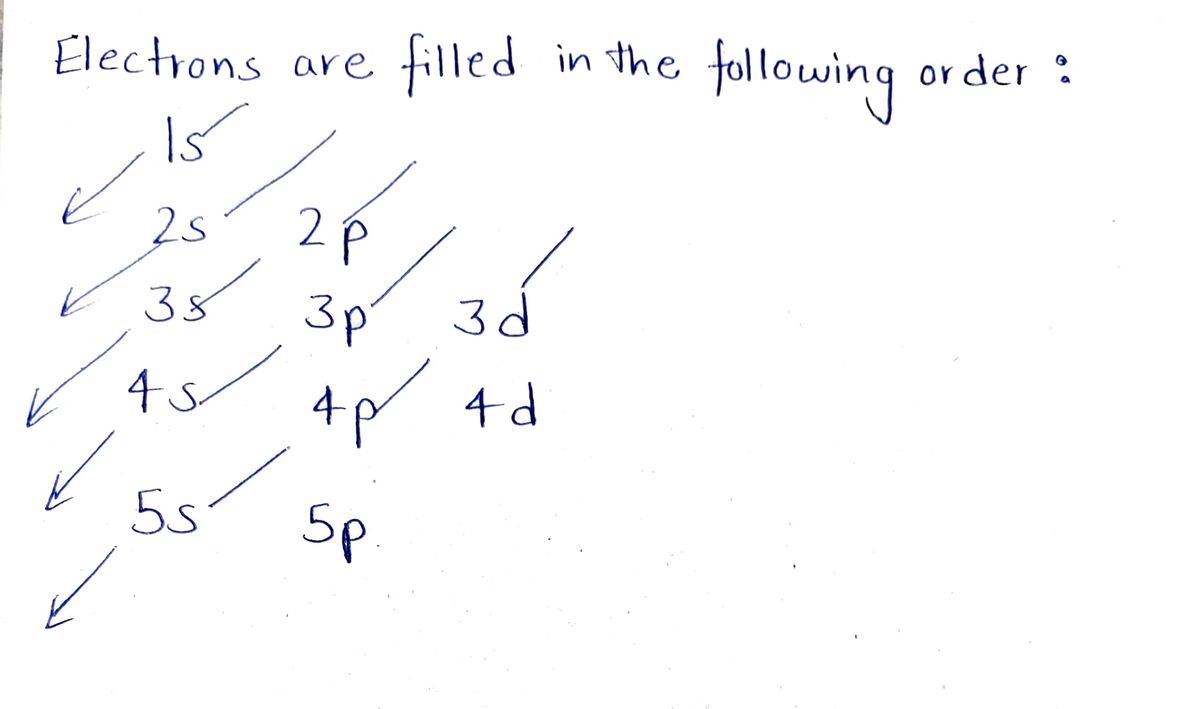 Electrons are filled in the following order :
1s
2s 2p
3s 3p 3d
4s 4p 4d
5s 5p